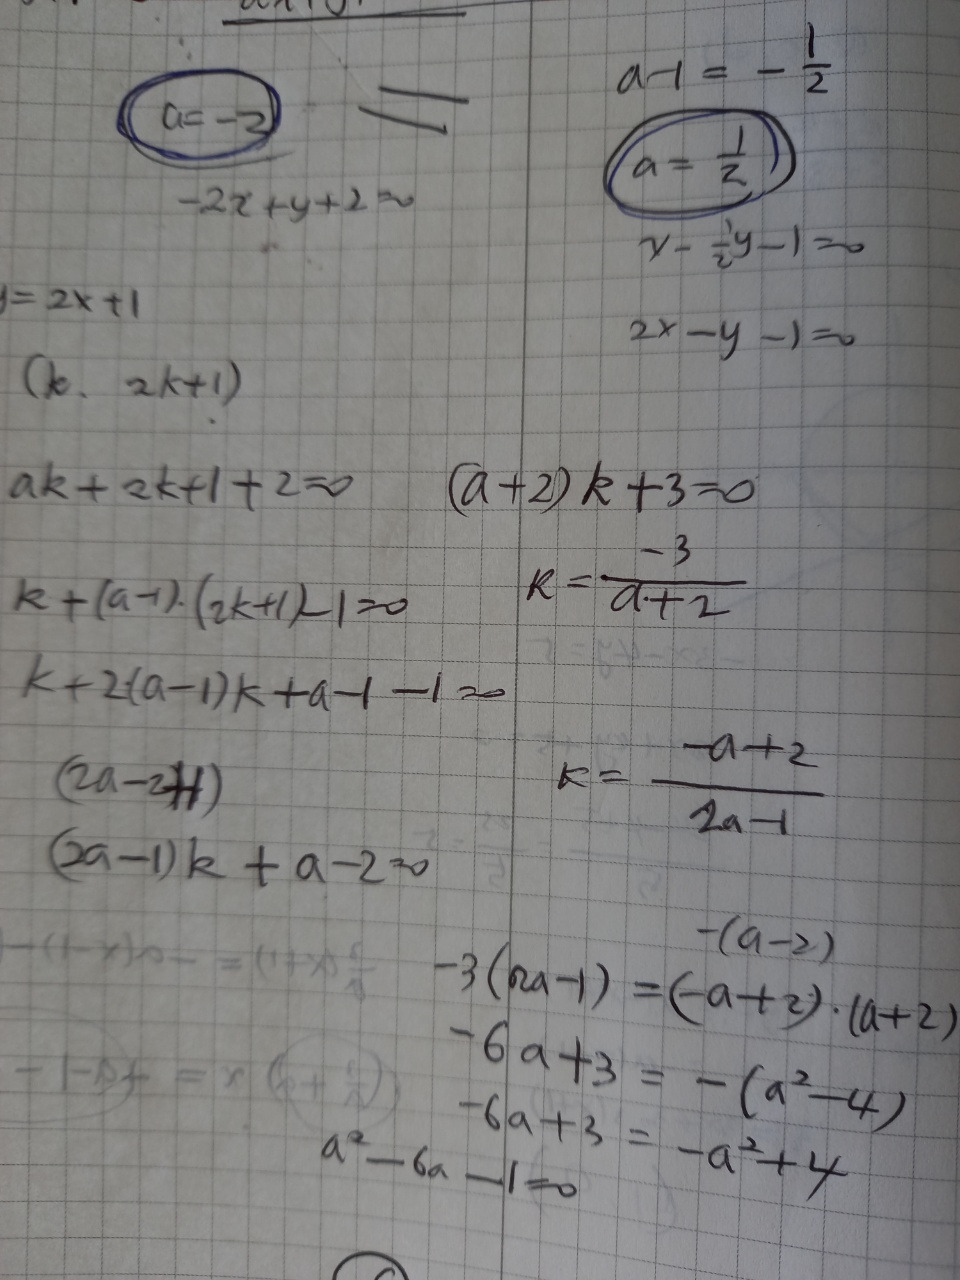 a-1 = -1/2
a = -2
a = 1/2
-2x+y+2=0
x - 1/2y - 1 = 0
y = 2x+1
2x - y - 1 = 0
(k. 2k+1)
ak + 2k+1+2=0 (a+2) k + 3 = 0
k + (a-1)·(2k+1)-1=0 k = -3/(a+2)
k+2(a-1)k+a-1-1=0
(2a-2+1) k = (-a+2)/(2a-1)
(2a-1)k + a-2=0
-(a-2)
-3(2a-1) = (-a+2)·(a+2)
-6a+3 = -(a²-4)
-6a+3 = -a²+4
a²-6a-1=0